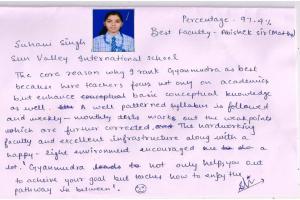 Percentage - 97.4%
Best Faculty - Abishek sir (Maths)
Suhani Singh
Sun Valley International School
The core reason why I rank Gyanmudra as best
because here teachers focus not only on academics
but enhance conceptual basic conceptual knowledge
as well. A well patterned syllabus is followed
and weekly-monthly tests marks out the weak points
which are further corrected. The hardworking
faculty and excellent infrastructure along with a
happy-light environment encouraged me to do a
lot. Gyanmudra not only helps you out
to achieve your goal but teaches how to enjoy the
pathway in between!